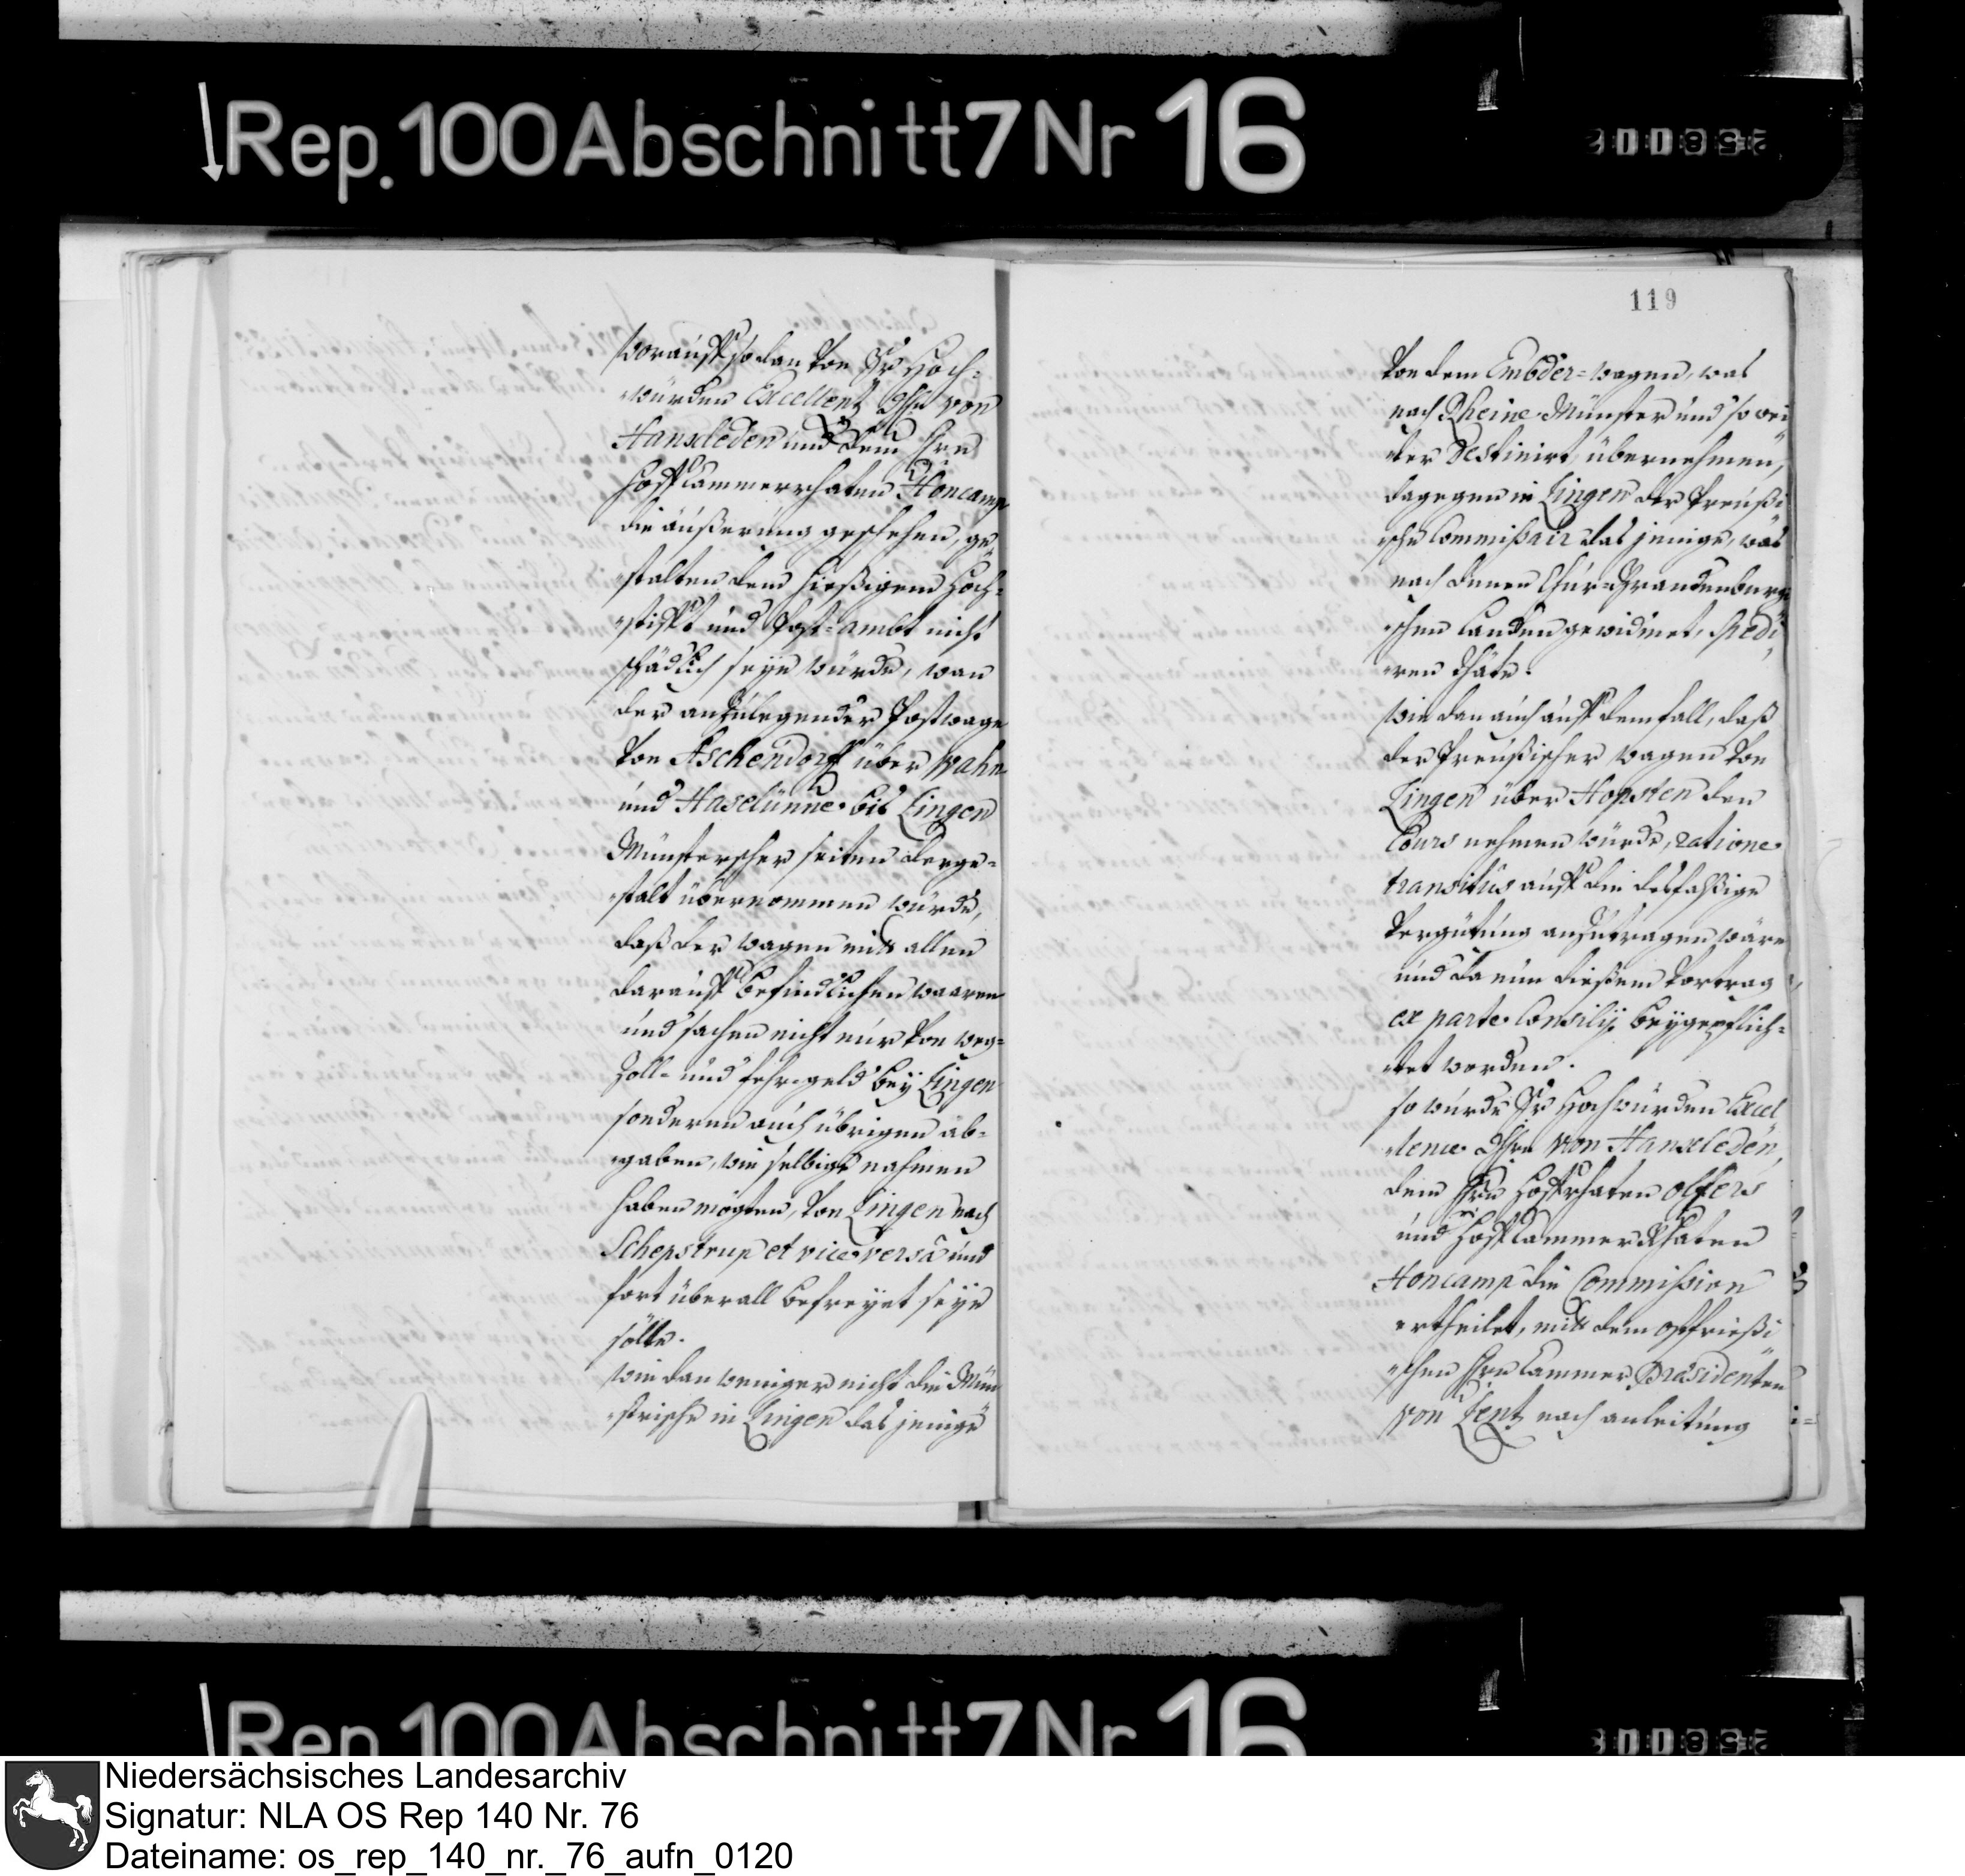 Rep. 100 Abschnitt 7 Nr 16
worauff so dan von Sr Hoch-
würden Excellentz Hhn von
Hanxleden und dem Hrn
Hoffkammerrhaten Honcamp
die äußerung geschehen, ge-
stalten dem hießigem Hoch-
stifft und Post-ambt nicht
schädlich seyn würde, wan
der anzulegender Postwage
von Aschendorff über Wahn
und Haselünne bis Lingen
Münsterscher seiten derge-
stalt übernommen würde,
daß der wagen mitt allen
darauff befindlichen waaren
und sachen nicht nur von weg-
Zoll- und fehrgeld bey Lingen
sonderen auch übrigen ab-
gaben, wie selbige nahmen
haben mögten, von Lingen nach
Schepstrup et vice versâ und
fort überall befreyet seyn
sölte.
wie dan weniger nicht die Mün-
strische in Lingen das jenige
119
von dem Embder-wagen, was
nach Rheine Münster und so wei
ter destinirt übernehmen,
dagegen in Lingen der Preußi
sche Commissair das jenige, was
nach denen Chur-Brandenburg
schen Landen gewidmet, spedi
ren thäte.
wie dan auch auff dem fall, daß
der Preußischer wagen von
Lingen über Hopsten den
Cours nehmen würde, ratione
transitûs auff die desfaßige
Vergütung anzutragen wäre
und da nun dießem Vortrag
ex parte Consilij beygepflich-
tet worden.
so wurde Sr Hochwürden Excel
lence Hhn von Hanxleden,
dem Hrn Hoffrhaten Olfers
und Hoffkammer Rhaten
Honcamp die Commission
ertheilet, mitt dem ostfrießi
schen Hrn Cammer Præsidenten
von Lentz nach anleitung
Niedersächsisches Landesarchiv
Signatur: NLA OS Rep 140 Nr. 76
Dateiname: os_rep_140_nr._76_aufn_0120